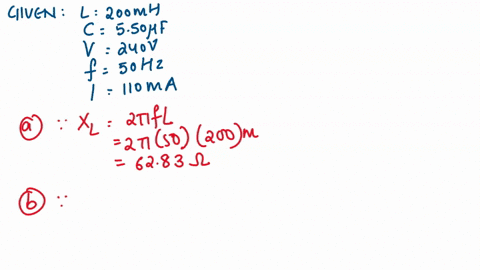 GIVEN: L: 200mH
C = 5.50μF
V = 240V
f = 50Hz
I = 110mA
a) ∵ XL : 2πfL
= 2π(50)(200)m
= 62.83 Ω
b) ∵